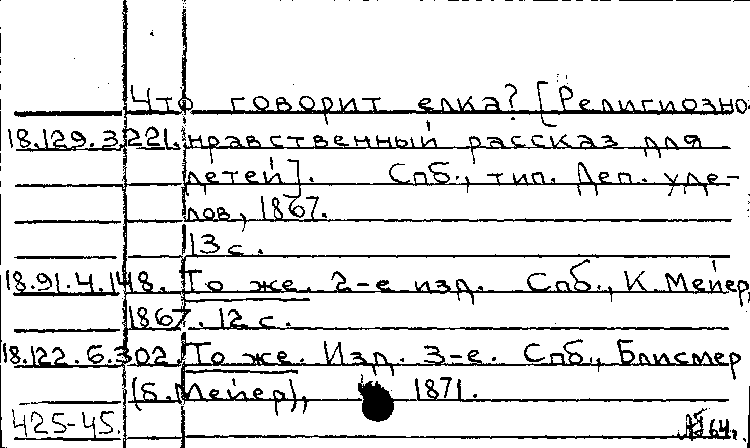 Что говорит елка? [Религиозно-
18.129.3.221. нравственный рассказ для
детей]. Спб., тип. Деп. уде-
лов, 1867.
13 с.
18.91.4.148. То же. 2-е изд. Спб., К. Мейер,
1867. 12 с.
18.122.6.302. То же. Изд. 3-е. Спб., Блисмер
(б. Мейер), 1871.
425-45.
64.